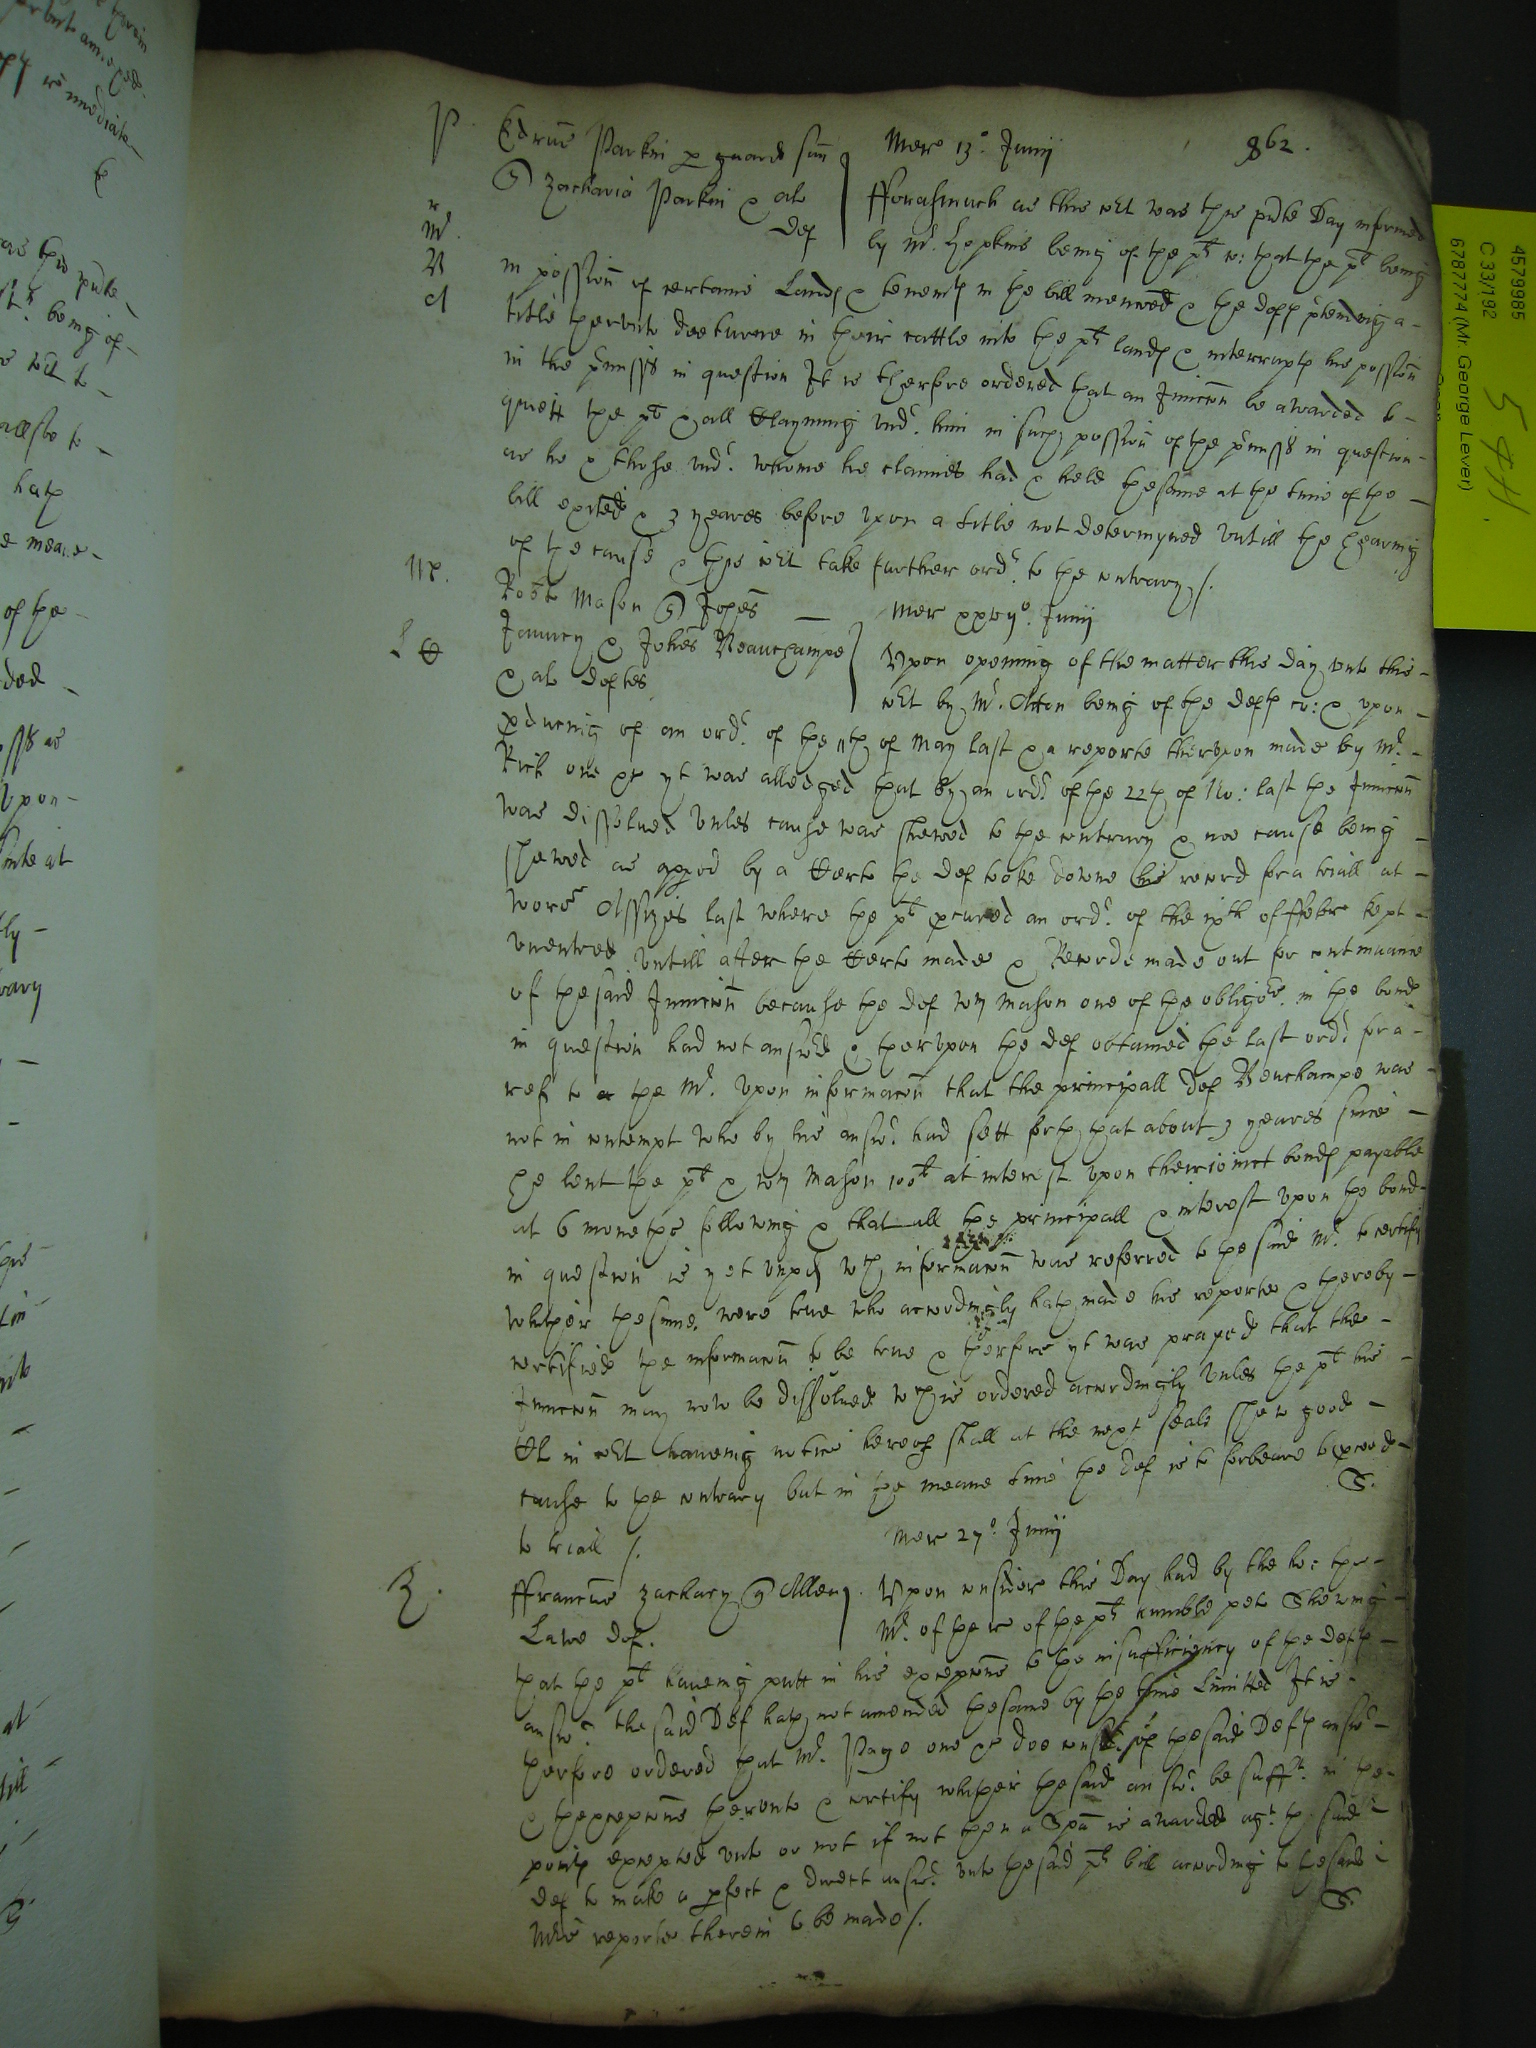 862.
P. Edrus Parkin p guard sun
Mer 13o Junij
Zacharia Parkin & al
def
fforasmuch as this Crt was this pnte Day informed
by Mr. Hopkins being of the pt co: that the pt being
in possion of certaine Lands & tenemts in the bill menconed & the defts ptending a
title therunto doe turne in their cattle into the pts lands & interrupts his possion
in the premisses in question It is therfore ordered that an Iniuncon be awarded to
quiett the pt & all Clayming undr. him in such possion of the premisses in question
as he & those undr. whome he claimes had & held the same at the time of the
bill exited & 3 yeares before Upon a title not determyned Untill the hearing
of the cause & this Crt take further ordr. to the contrary /.
Mr.
Robte Mason Johen
Mer xxvijo. Junij
Jauncy & Johes Beauchampe
& al deftes
Upon opening of the matter this day unto this
Crt by Mr. Alton being of the defts co: & upon
pducing of an ordr. of the 11th of May last & a reporte therupon made by Mr.
Rich one &c yt was alledged that by an ordr of the 22th of No: last the Iniuncon
was dissolued Unles cause was shewed to the contrary & noe cause being
shewed as appred by a Certe the def tooke downe his record for a triall at
Worcr Assizes last where the pt pcured an ordr. of the ixth of ffebr kept
unentred Untill after the Certe made & Records made out for continuance
of the said Iniuncon because the def Wm Mason one of the obligors. in the bond
in question had not answed & therupon the def obtained the last ordr for a
refr to the Mr. Upon informacon that the principall def Beuchampe was
not in contempt who by his answr. had sett forth that about 3 yeares since
he lent the pt & Wm Mason 100li at interest upon their ioinct bonds payable
at 6 moneths following & that all the principall & interest upon the bond
in question is yet unpd wch informacon was referred to the said Mr. to certify
whether the same were true who accordingly hath made his reporte & thereby
certified the informacon to be true & therfore yt was prayed that the
Iniuncon may now be dissolued wch is ordered accordingly Unles the pt his
Cl in Crt haueing notice hereof shall at the next seale shew good
cause to the contrary but in the meane time the def is to forbeare to pceed
to triall /.
S.
Mer 27o Junij
Z.
ffrancus Zachary Allen
Lawe def.
Upon consider this Day had by the ho: the
Mr. of the r of the pts humble peto Shewing
that the pt haueing putt in his excepcons to the insufficiency of the defts
answr. the said Def hath not amended the same by the time Limitted It is
therfore ordered that Mr. Page one &c doe consdr. of the said Defts answr
& thexcepcons therunto & certify whether the said answr. be sufft. in the
points excepted unto or not if not then a Spa is awarded agt. the said
Def to make a pfect & direct answr. unto the said pts bill according to the said
Mrs reporte therein to be made /.
S.
4579985
C 33/192
6787774 (Mr. George Lever)